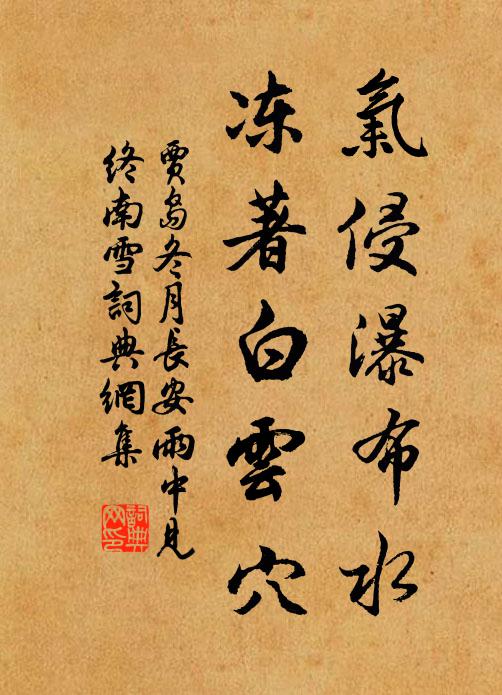 氣侵瀑布水
冻著白雲穴
賈島冬月長安雨中見
終南雪詞典網集
詞典
网印